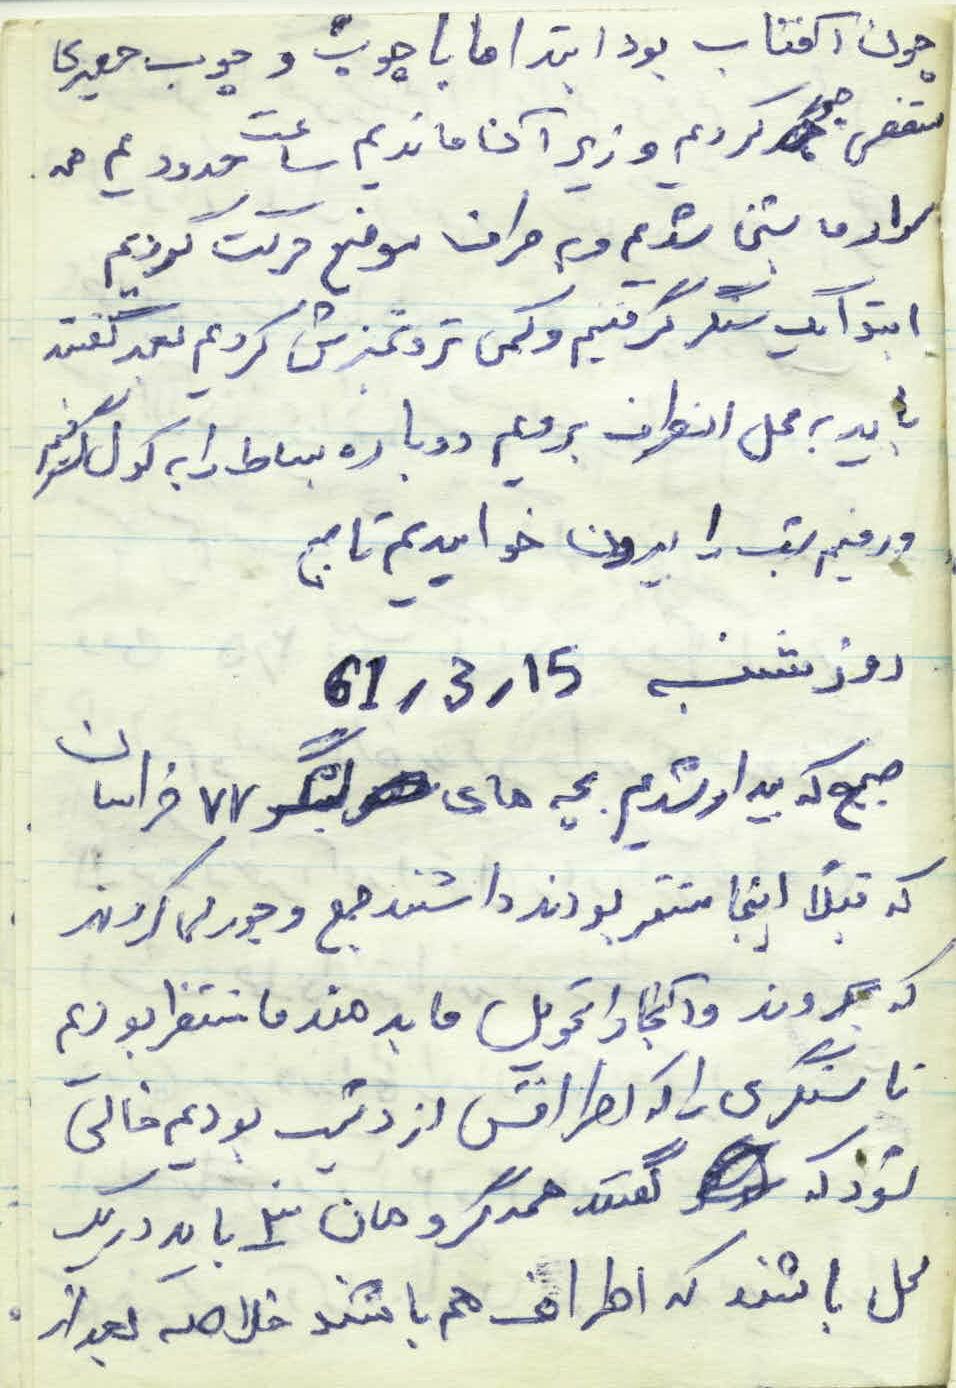 چون آفتاب بود ابتدا ما با چوب و چوب جعبه‌ها
سقفی جور کردیم و زیر آن ماندیم ساعت حدود ۴ همه
سوار ماشین شدیم و به طرف موضع حرکت کردیم
ابتدا یک سنگر گرفتیم و کمی تر و تمیزش کردیم بعد گفتند
باید به محل انطرف برویم دوباره بساط را به کول گرفتیم
و رفتیم شب را بیرون خوابیدیم تا صبح
روز شنبه 15 ,3 ,61
صبح که بیدار شدیم بچه های لشگر ۷۷ خراسان
که قبلاً اینجا مستقر بودند داشتند جمع و جور می کردند
که بروند و آنجا را تحویل ما بدهند ما منتظر بودیم
تا سنگری را که اطرافش از دیشب بودیم خالی
شود که گفتند همه گروهان باید در یک
محل باشند که اطراف هم باشند خلاصه بعد از